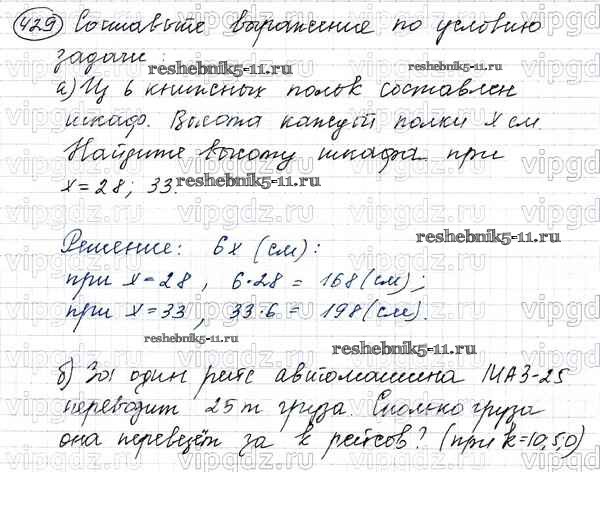 429 Составьте выражение по условию
задачи:
а) Из 6 книжных полок составлен
шкаф. Высота каждой полки x см.
Найдите высоту шкафа при
x = 28; 33.
Решение: 6x (см):
при x = 28, 6·28 = 168 (см);
при x = 33, 33·6 = 198 (см).
б) За один рейс автомашина МАЗ-25
перевозит 25 т груза. Сколько груза
она перевезёт за k рейсов? (при k = 10, 5, 0)
reshebnik5-11.ru
reshebnik5-11.ru
reshebnik5-11.ru
reshebnik5-11.ru
reshebnik5-11.ru
vipgdz.ru